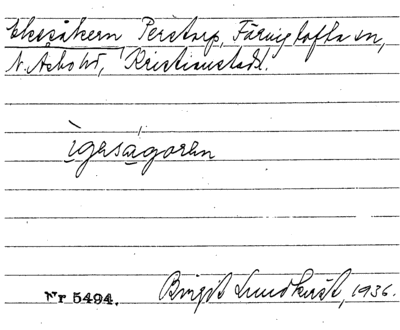 Ekesåkern Perstorp, Färingtofta sn,
N. Åsbo hd, Kristianstads l.
ìgəságorən
Nr 5494. Birgit Lundkvist, 1936.